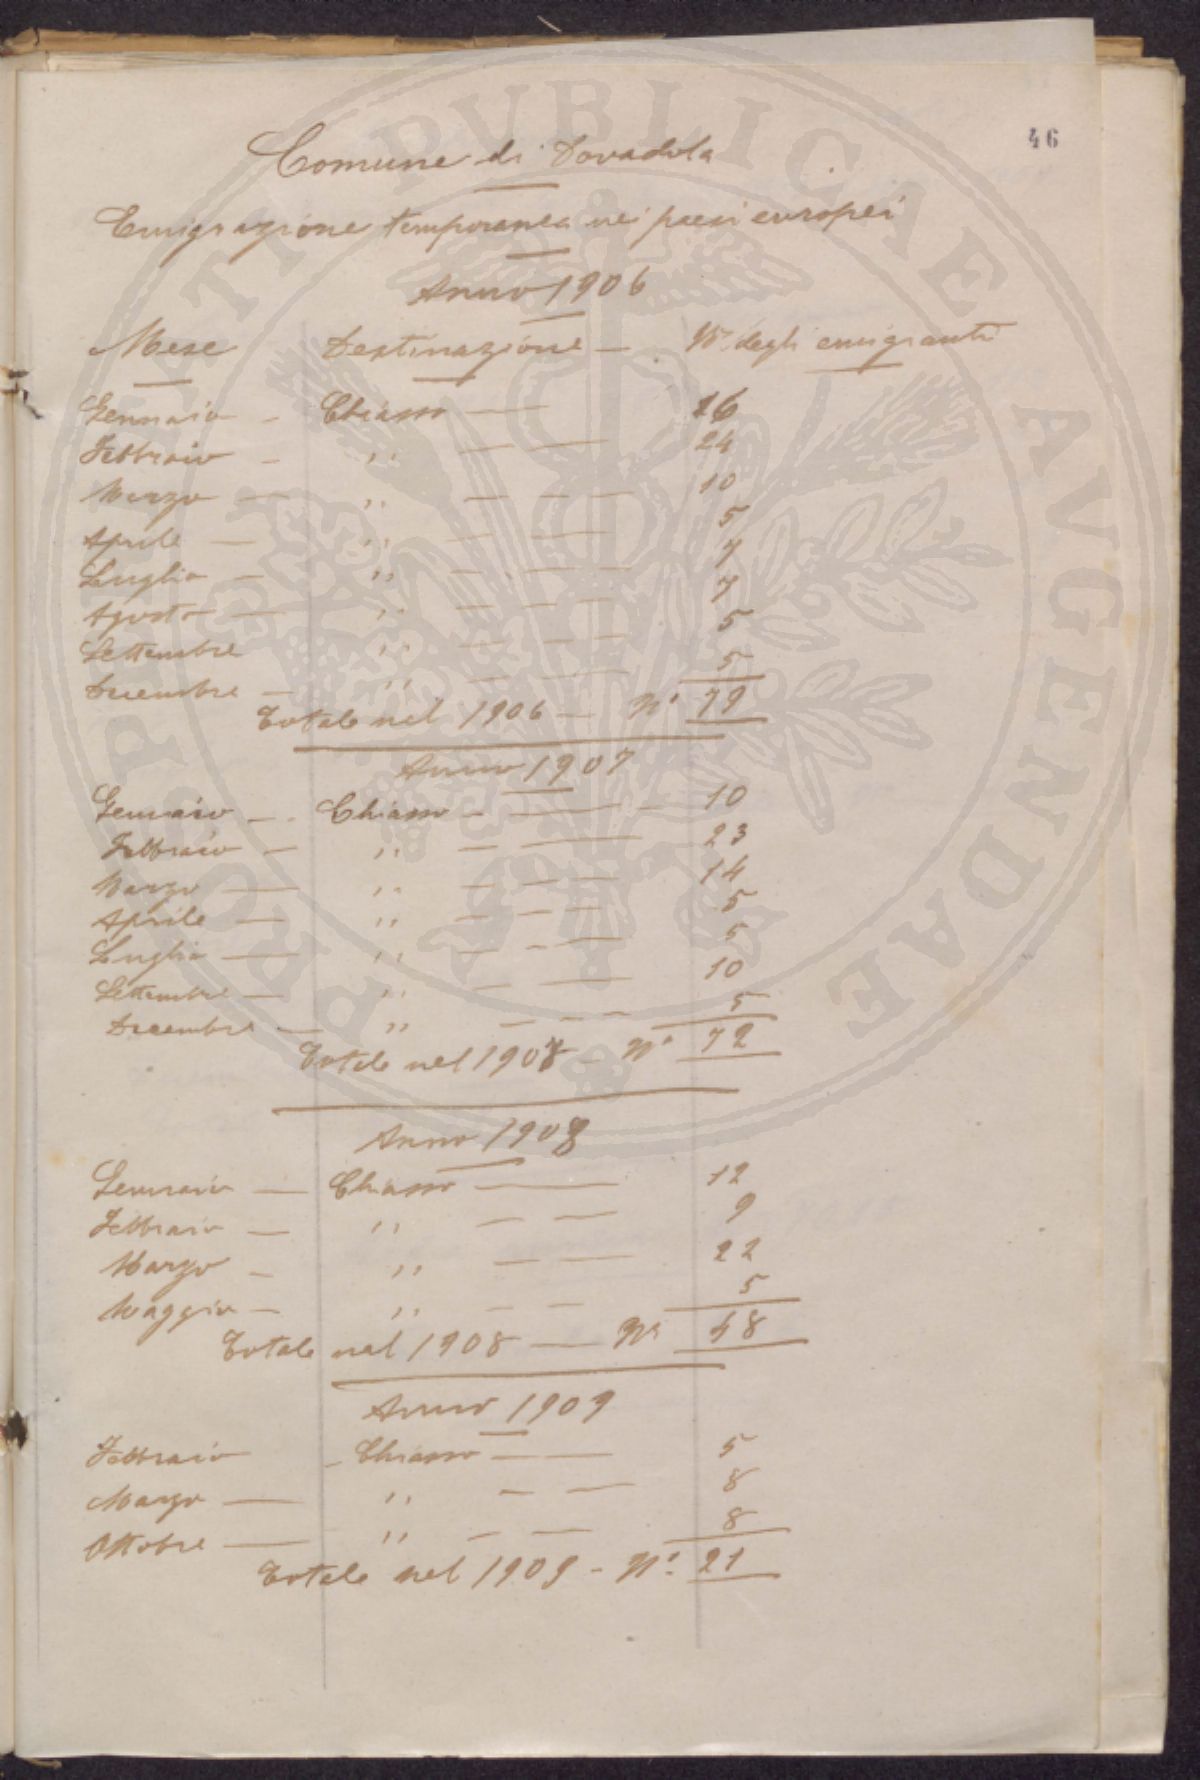 46
Comune di Dovadola
Emigrazione temporanea nei paesi europei
Anno 1906
Mese Destinazione — N° degli emigranti
Gennaio — Chiasso — 16
Febbraio — ,, — — 24
Marzo — ,, — — — 10
Aprile — ,, — — — 5
Luglio — ,, — — — 7
Agosto — ,, — — — 7
Settembre ,, — — — 5
Decembre — ,, — — — 5
Totale nel 1906 — N° 79
Anno 1907
Gennaio — Chiasso — — 10
Febbraio — ,, — — 23
Marzo — ,, — — — 14
Aprile — ,, — — — 5
Luglio — ,, — — — 5
Settembre — ,, — — 10
Decembre — ,, — — — 5
Totale nel 1907 — N° 72
Anno 1908
Gennaio — Chiasso — 12
Febbraio — ,, — — 9
Marzo — ,, — — 22
Maggio — ,, — — 5
Totale nel 1908 — N° 48
Anno 1909
Febbraio — Chiasso — 5
Marzo — ,, — — 8
Ottobre — ,, — — 8
Totale nel 1909 - N° 21
PROSPERITATI PVBLICAE AVGENDAE